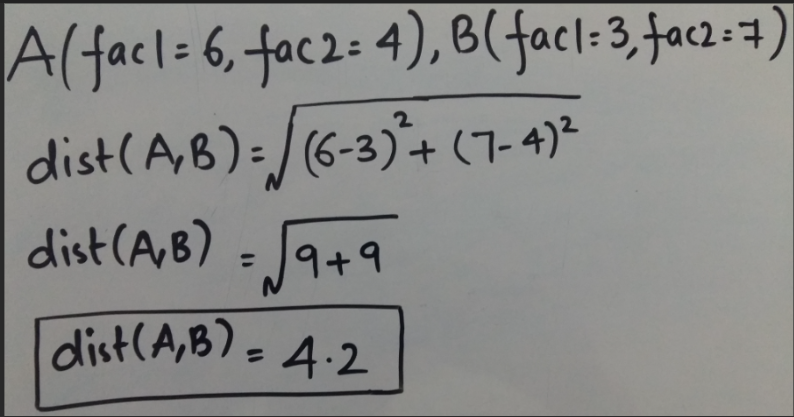 A(fac1=6, fac2=4), B(fac1=3, fac2=7)
dist(A,B)=√(6-3)²+(7-4)²
dist(A,B) = √9+9
dist(A,B) = 4.2